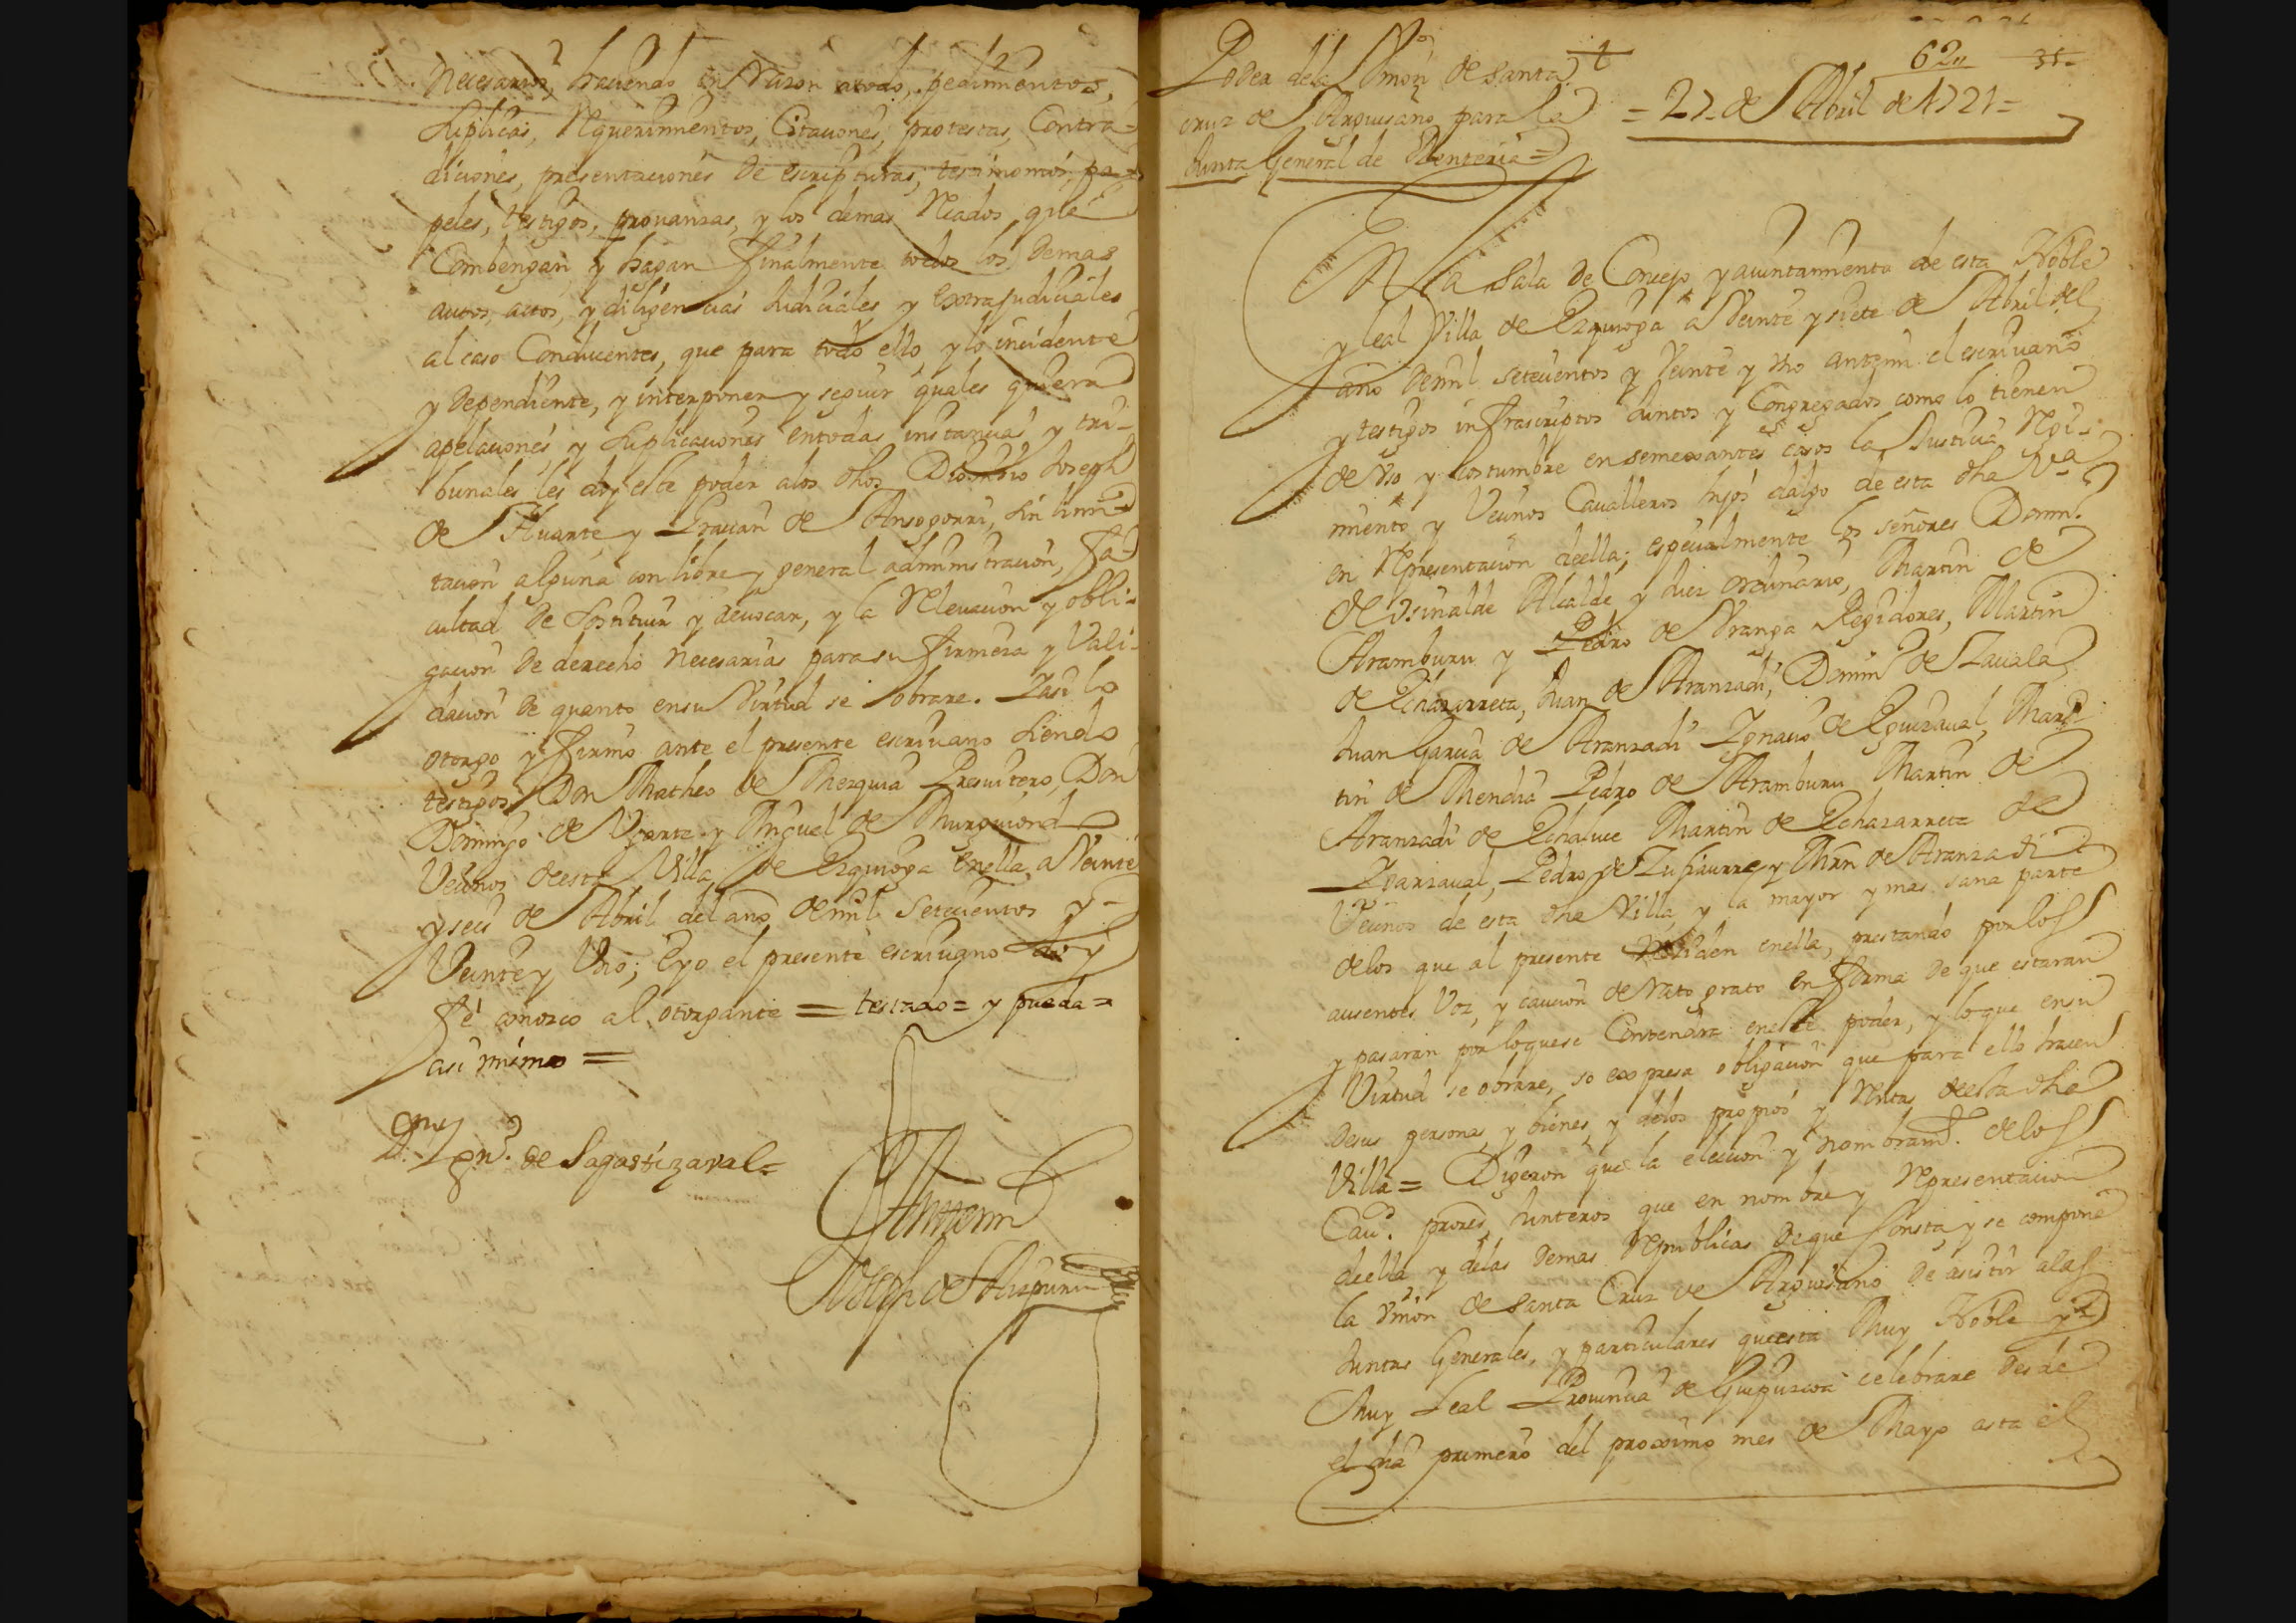 necesarios, haciendo en Razon atodo, pedimentos,
suplicas, Requerimientos, Citaciones, protestas, Contra-
diciones, presentaciones de escripturas, testimonios, pa-
peles, testigos, prouanzas, y los demas Recados que
Combengan, y hagan finalmente todos los demas
autos, actos, y diligencias Judiciales y extrajudiciales
al caso Conducentes, que para todo ello, y lo incidente
y dependiente, y interponer y seguir quales quiera
apelaciones y suplicaciones entodas instancias y tri-
bunales les doy este poder alos dhos Dionisio Joseph
de Huarte y Gracian de Ansogorri, sin limi-
tacion alguna con libre y general administracion, fa-
cultad de sostituir y reuocar, y la Releuacion y obli-
gacion de derecho necesarias para su firmeza y Vali-
dacion de quanto ensu Virtud se obrare. Y asi lo
otorgo y firmo ante el presente escriuano siendo
testigos Don Matheo de Mezquia Presuitero, Don
Domingo de Vgarte y Miguel de Murguiondo
Vecinos deesta Villa de Ezquioga enella, a Veinte
y seis de Abril del año de mil setecientos y
Veinte y Vno; Eyo el presente escriuano doy
fe conozco al otorgante = testado = y pueda =
asi mismo =
Dn Ign.º de Sagastizaval =
Antemi
Joseph de Aizpuru
Poder dela Vnion de santa
cruz de Arguisano para la
Junta General de Renteria =
62
35
= 27 de Abril de 1721 =
EN la Sala de Concejo y ayuntamiento de esta Noble
y leal Villa de Ezquioga a Veinte y siete de Abril del
año demil setecientos y Veinte y Vno antemi el escriuano
y testigos infrascriptos Juntos y Congregados como lo tienen
de Vso y costumbre en semexantes casos la Justicia, Regi-
miento, y Vecinos Caualleros hijos dalgo de esta dha Vª
en Representacion deella; especialmente los señores Domin.º
de Vsinalde Alcalde y Juez ordinario, Martin de
Aramburu y Pedro de Vranga Regidores, Martin
de Echazarreta, Juan de Aranzadi, Domin.º de Zauala,
Juan Garcia de Aranzadi Ignacio de Eguizaual, Mar-
tin de Mendia Pedro de Aramburu Martin de
Aranzadi de Echaluce Martin de Echazarreta de
Ygarzaual, Pedro de Zufiaurre y Mrn de Aranzadi
Vecinos de esta dha Villa, y la mayor y mas sana parte
delos que al presente Residen enella, prestando por los
ausentes Voz, y caucion de rato grato en forma de que estaran
y pasaran por loquese Contendra eneste poder, y loque ensu
Virtud se obrare, so expresa obligacion que para ello hacen
desus personas, y bienes, y delos propios y Rentas deesta dha
Villa = Digeron que la eleccion y nombram.to delos
Cau.os prores, Junteros que en nombre y Representacion
deella y delas demas Republicas de que Consta, y se compone
la Vnion de santa Cruz de Arguisano de asistir alas
Juntas Generales, y particulares queesta Muy Noble y
Muy Leal Prouincia de Guipuzcoa celebrare desde
el dia primero del proximo mes de Mayo asta el